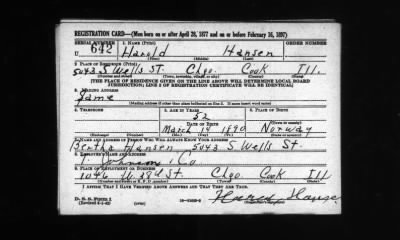 REGISTRATION CARD—(Men born on or after April 28, 1877 and on or before February 16, 1897)
SERIAL NUMBER 1. NAME (Print) ORDER NUMBER
U 642 Harold Hansen
(First) (Middle) (Last)
2. PLACE OF RESIDENCE (Print)
5043 S Wells St. Chgo. Cook Ill.
(Number and street) (Town, township, village, or city) (County) (State)
[THE PLACE OF RESIDENCE GIVEN ON THE LINE ABOVE WILL DETERMINE LOCAL BOARD
JURISDICTION; LINE 2 OF REGISTRATION CERTIFICATE WILL BE IDENTICAL]
3. MAILING ADDRESS
Same
[Mailing address if other than place indicated on line 2. If same insert word same]
4. TELEPHONE 5. AGE IN YEARS 6. PLACE OF BIRTH
52
DATE OF BIRTH
March 14 1890 Norway
(Exchange) (Number) (Mo.) (Day) (Yr.) (State or country)
7. NAME AND ADDRESS OF PERSON WHO WILL ALWAYS KNOW YOUR ADDRESS
Bertha Hansen 5043 S Wells St.
8. EMPLOYER'S NAME AND ADDRESS
Johnson Co
9. PLACE OF EMPLOYMENT OR BUSINESS
1046 W. St. Chgo Cook Ill
(Number and street or R. F. D. number) (Town) (County) (State)
I AFFIRM THAT I HAVE VERIFIED ABOVE ANSWERS AND THAT THEY ARE TRUE.
D. S. S. Form 1
(Revised 4-1-42)